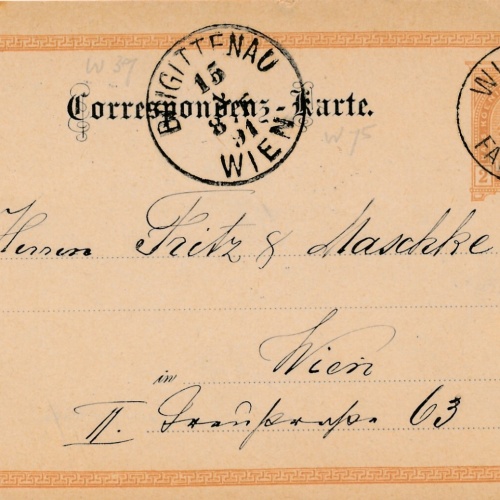 W 39
BRIGITTENAU
15
8
91
WIEN
Correspondenz-Karte.
W 75
WI
FA
2
Herren Fritz & Maschke
in Wien
II. 63